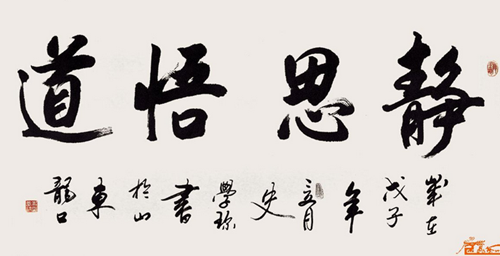 静思悟道
岁在
戊子
年
三月
史
學琮
書
於山
東
龍口